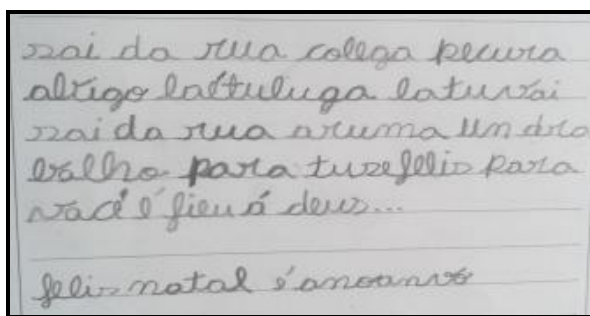 sai da rua colega pecura
abrigo lattuluga latuvai
sai da rua aruma um dra
balho para tuze felis para
você é fieu á deus...
felis natal é anoanvo